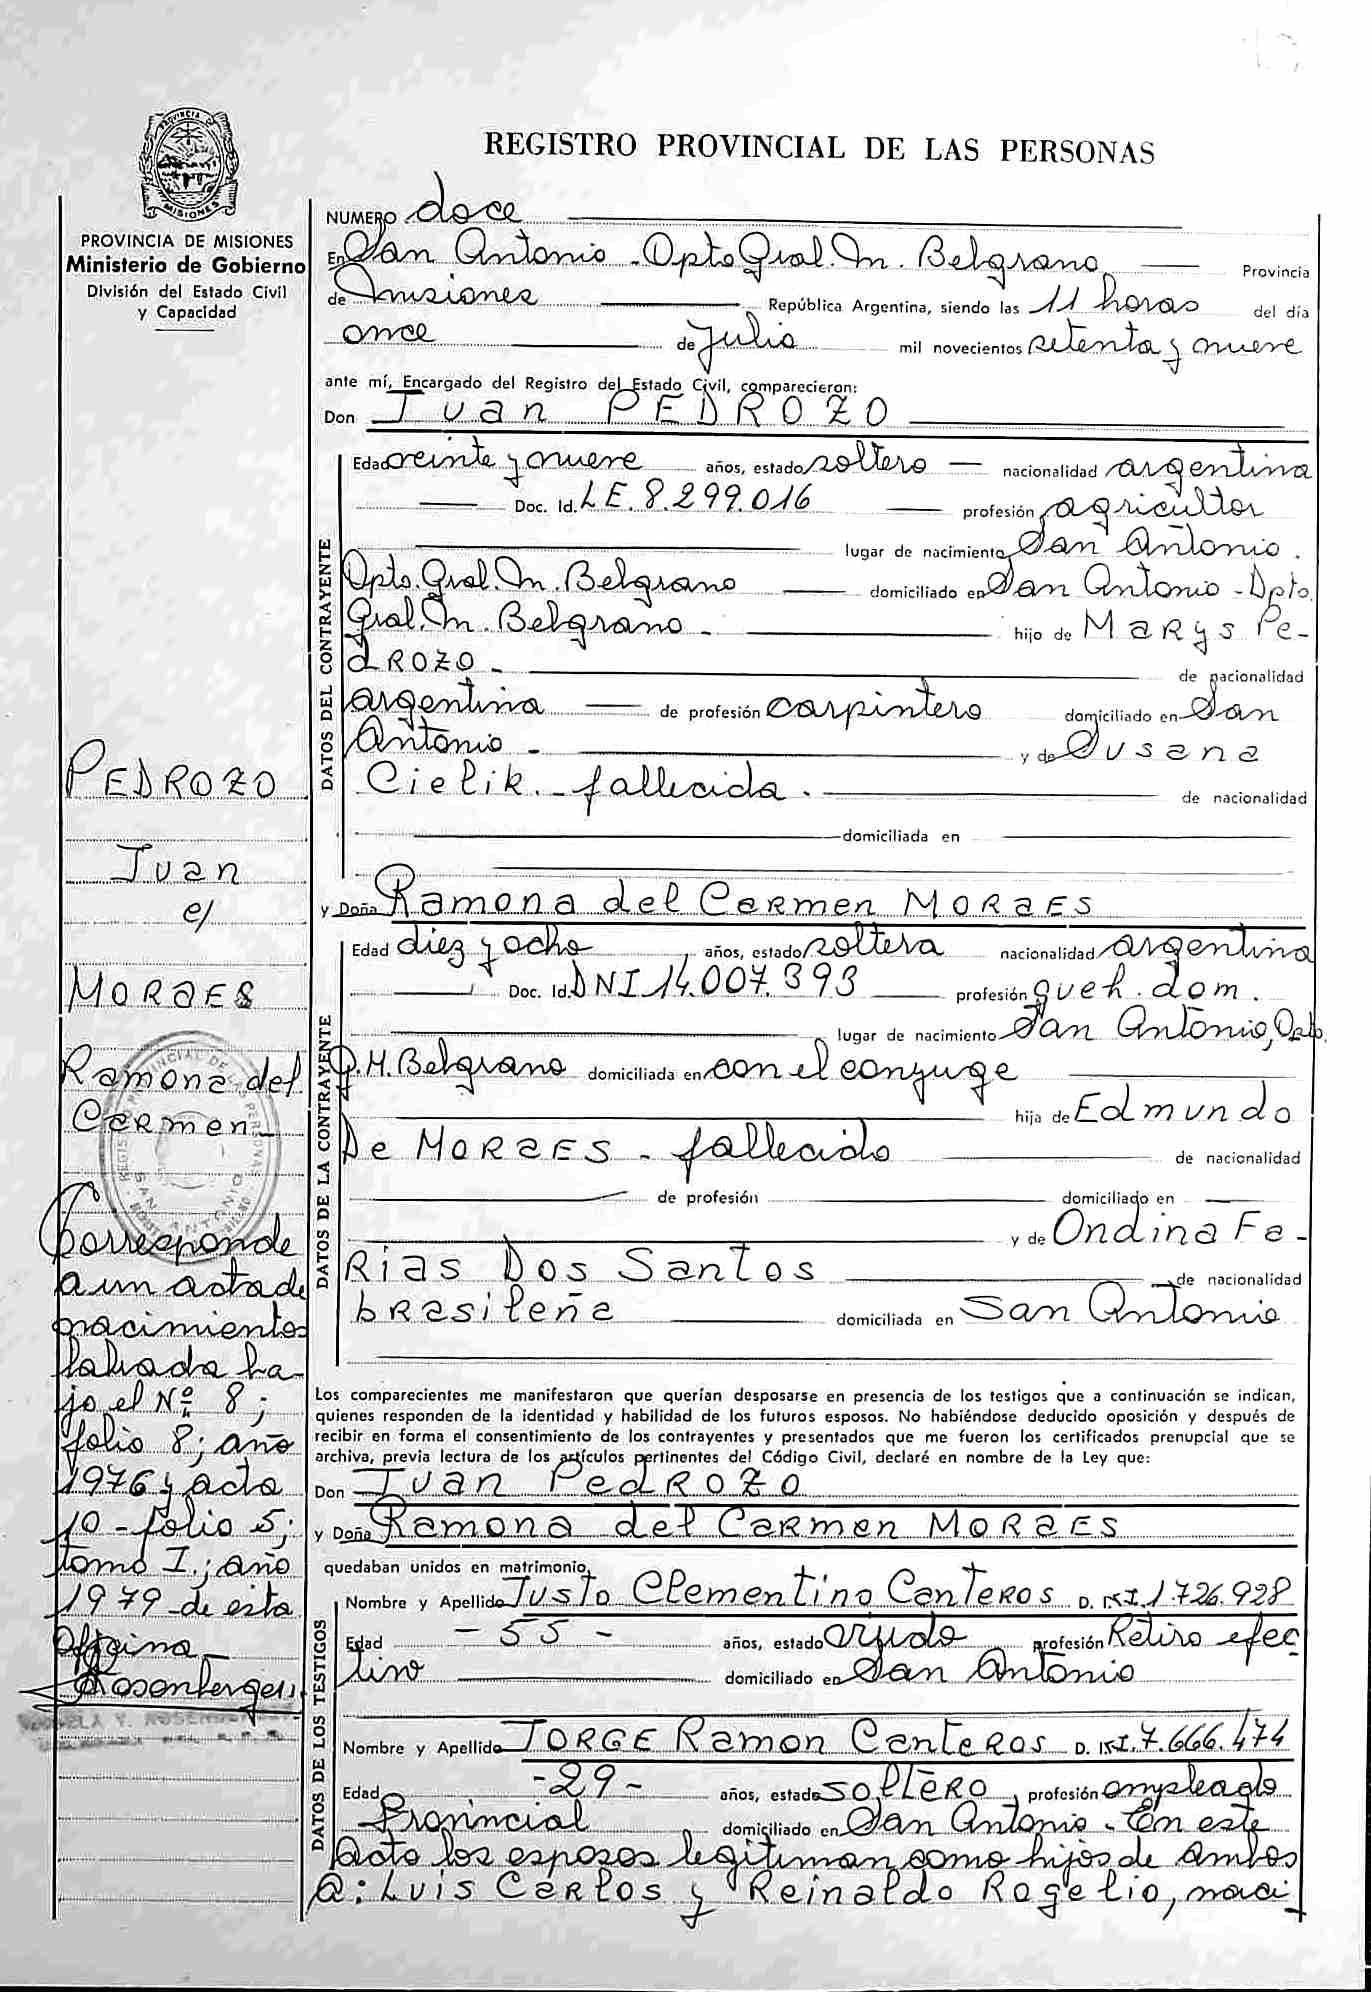 REGISTRO PROVINCIAL DE LAS PERSONAS
MISIONES
PROVINCIA DE MISIONES
Ministerio de Gobierno
División del Estado Civil
y Capacidad
NUMERO doce
En San Antonio - Dpto Gral. M. Belgrano, Provincia
de Misiones República Argentina, siendo las 11 horas del día
once de Julio mil novecientos setenta y nueve
ante mí, Encargado del Registro del Estado Civil, comparecieron:
Don Juan PEDROZO
DATOS DEL CONTRAYENTE
Edad veinte y nueve años, estado soltero — nacionalidad argentina
Doc. Id. L E. 8.299.016 profesión agricultor
lugar de nacimiento San Antonio.
Dpto. Gral. M. Belgrano domiciliado en San Antonio - Dpto.
Gral. M. Belgrano - hijo de Marys Pe-
drozo - de nacionalidad
argentina de profesión carpintero domiciliado en San
Antonio - y de Susana
Cielik - fallecida. de nacionalidad
domiciliada en
y Doña Ramona del Carmen MORAES
DATOS DE LA CONTRAYENTE
Edad diez y ocho años, estado soltera nacionalidad argentina
Doc. Id. DNI 14.007.393 profesión queh. dom.
lugar de nacimiento San Antonio, Dpto.
G. M. Belgrano domiciliada en con el conyuge
hija de Edmundo
De MORAES - fallecido de nacionalidad
de profesión domiciliado en
y de Ondina Fa-
rias Dos Santos de nacionalidad
brasileña domiciliada en San Antonio
Los comparecientes me manifestaron que querían desposarse en presencia de los testigos que a continuación se indican,
quienes responden de la identidad y habilidad de los futuros esposos. No habiéndose deducido oposición y después de
recibir en forma el consentimiento de los contrayentes y presentados que me fueron los certificados prenupcial que se
archiva, previa lectura de los artículos pertinentes del Código Civil, declaré en nombre de la Ley que:
Don Juan Pedrozo
y Doña Ramona del Carmen MORAES
quedaban unidos en matrimonio.
DATOS DE LOS TESTIGOS
Nombre y Apellido Justo Clementino Canteros D. M.I. 1.726.928
Edad - 55 - años, estado viudo profesión Retiro efec
tivo domiciliado en San Antonio
Nombre y Apellido JORGE Ramon Canteros D. M.I. 7.666.474
Edad -29- años, estado soltero, profesión empleado
Provincial domiciliado en San Antonio. En este
Acto los esposos legitiman como hijos de ambos
a: Luis Carlos y Reinaldo Rogelio, naci-
PEDROZO
Juan
c/
MORAES
Ramona del
Carmen
Corresponde
a un acta de
nacimiento
labrada ba-
jo el Nº 8;
folio 8; año
1976 y acta
10 - folio 5;
tomo I.; año
1979 - de esta
Oficina -